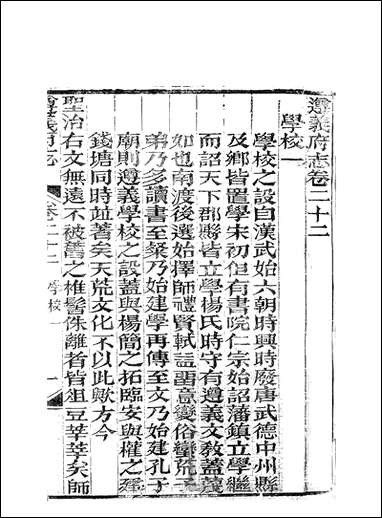 遵義府志卷二十二
學校一
學校之設自漢武始六朝時興時廢唐武德中州縣
及鄉皆置學宋初但有書院仁宗始詔藩鎮立學繼
而詔天下郡縣皆立學楊氏時守有遵義文教蓋蔑
如也南渡後選始擇師禮賢軾詰謵意變俗蠻荒子
弟乃多讀書至粲乃始建學再傳至文乃始建孔子
廟則遵義學校之設蓋與楊簡之拓臨安與權之建
錢塘同時並著矣天荒文化不以此歟方今
聖治右文無遠不被舊之椎髻侏離者皆俎豆莘莘矣師
遵義府志 卷二十二 學校一 一